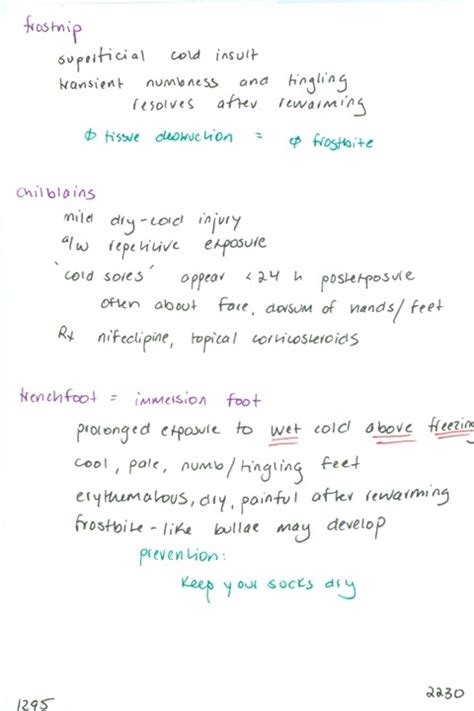 frostnip
superficial cold insult
transient numbness and tingling
resolves after rewarming
φ tissue destruction = φ frostbite
chilblains
mild dry-cold injury
a/w repetitive exposure
'cold sores' appear <24 h postexposure
often about face, dorsum of hands/feet
Rx nifedipine, topical corticosteroids
trenchfoot = immersion foot
prolonged exposure to wet cold above freezing
cool, pale, numb/tingling feet
erythematous, dry, painful after rewarming
frostbite-like bullae may develop
prevention:
keep your socks dry
1295
2230